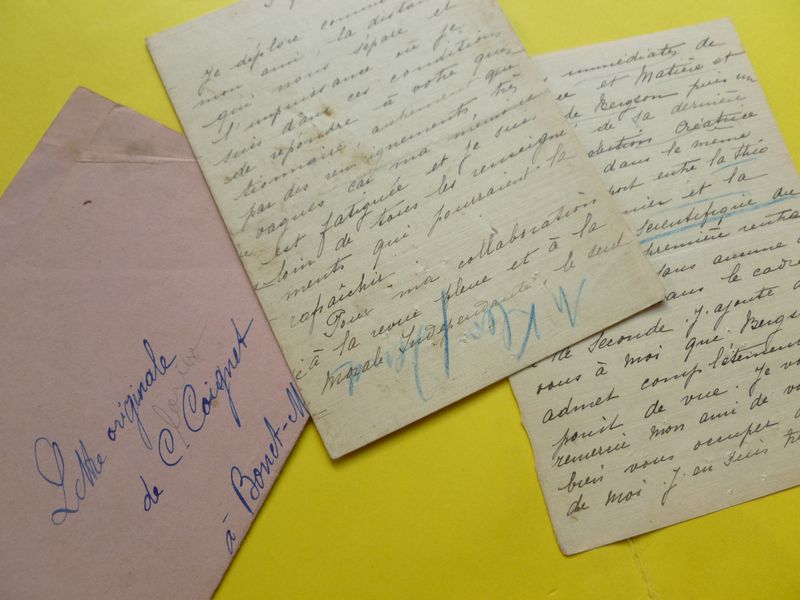 Lettre originale
de C Coignet
à Bonet-M
Clarisse
Je déplore comme
mon ami, la distan
qui nous sépare et
l'impuissance où je
suis dans ces conditions
de répondre à votre ques
tionnaire, autrement que
par des renseignements, très
vagues car ma mémoire
est fatiguée et je suis
loin de tous les renseigne
ments qui pourraient la
rafraîchir.
Pour ma collaboration
à la revue bleue et à la
Morale Indépendante, le seul
immédiates de
ce et Matière et
de Bergson puis un
de sa dernière
olution Créatrice
dans le même
port entre la théo
nier et la
scientifique du
première, rentra
sans aucune
dans le cadre
de Seconde. J'ajoute
vous à moi que Bergs
admet complètement
point de vue. Je vo
remercie mon ami de vo
bien vous occuper
de moi. J'en suis tr